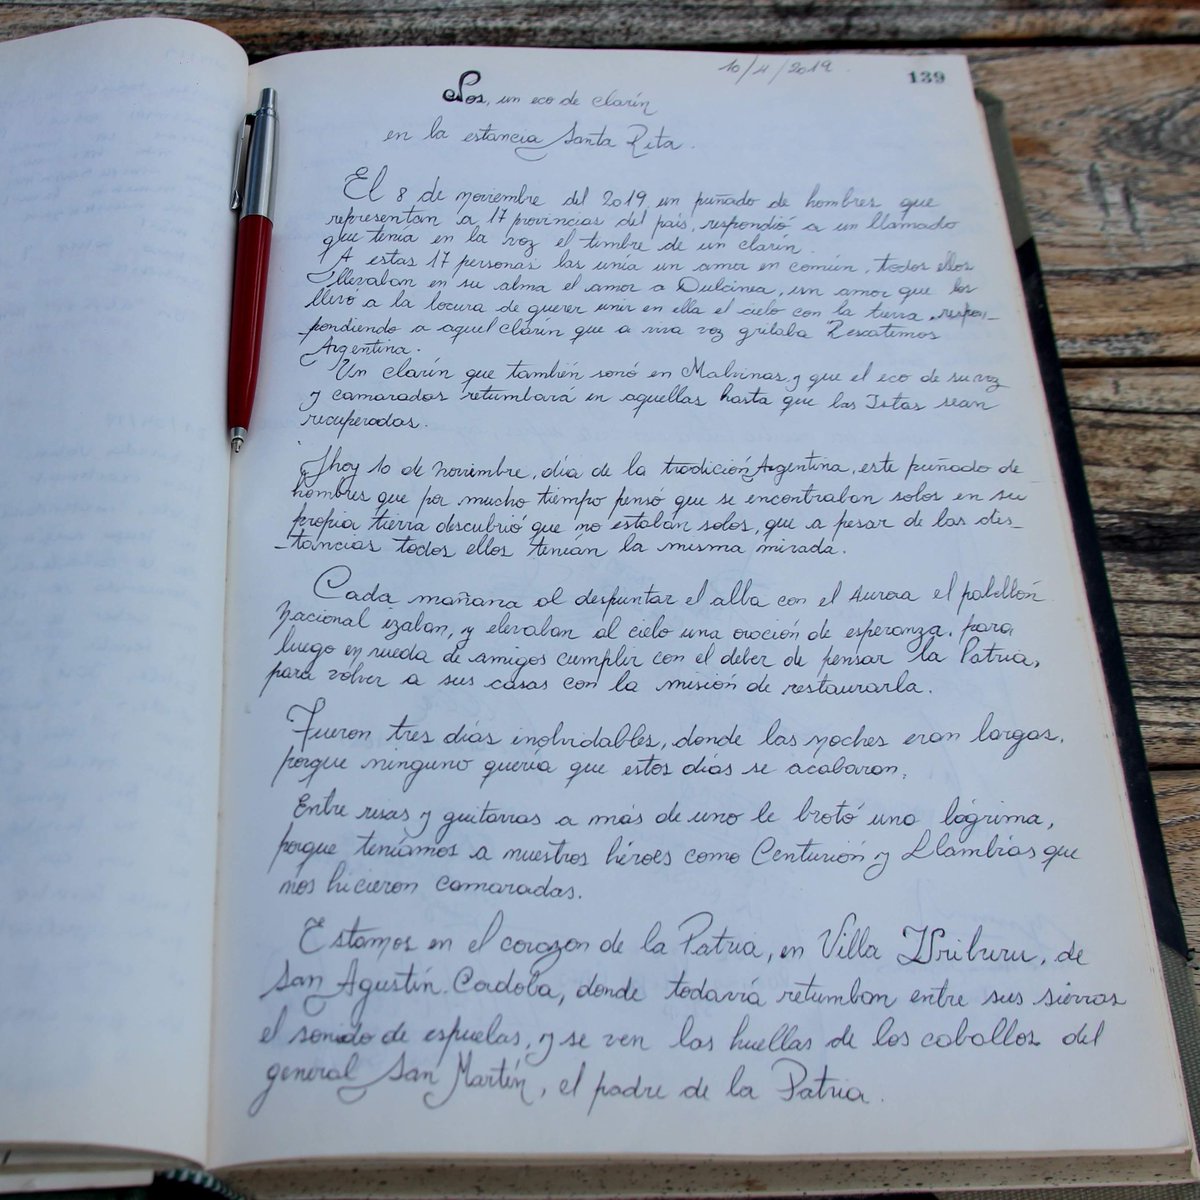 10/11/2019
139
Sos, un eco de clarín
en la estancia Santa Rita.
El 8 de noviembre del 2019, un puñado de hombres que
representan a 17 provincias del país, respondió a un llamado
que tenía en la voz el timbre de un clarín.
A estas 17 personas las unía un amor en común, todos ellos
llevaban en su alma el amor a Dulcinea, un amor que los
llevo a la locura de querer unir en ella el cielo con la tierra, respon_
_pondiendo a aquel clarín que a viva voz gritaba Rescatemos
Argentina.
Un clarín que también sonó en Malvinas, y que el eco de su voz
y camaradas retumbara en aquellas hasta que las Islas sean
recuperadas.
Hoy 10 de noviembre, día de la tradición Argentina, este puñado de
hombres que por mucho tiempo pensó que se encontraban solos en su
propia tierra descubrió que no estaban solos, que a pesar de las dis_
_tancias todos ellos tenían la misma mirada.
Cada mañana al despuntar el alba con el Aurora el pabellón
Nacional izaban, y elevaban al cielo una oración de esperanza. para
luego en rueda de amigos cumplir con el deber de pensar la Patria,
para volver a sus casas con la misión de restaurarla.
Fueron tres días inolvidables, donde las noches eran largas,
porque ninguno quería que estos días se acabaran,
Entre risas y guitarras a más de uno le brotó una lágrima,
porque teníamos a nuestros héroes como Centurión y Llambías que
nos hicieron camaradas.
Estamos en el corazon de la Patria, en Villa Uriburu, de
San Agustín. Cordoba, donde todavía retumban entre sus sierras
el sonido de espuelas, y se ven las huellas de los caballos del
general San Martín, el padre de la Patria.